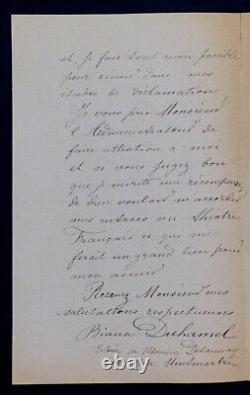 et je fais tout mon possible
pour réussir dans mes
études de déclamation
Je vous prie Monsieur
l'Administrateur de
faire attention à moi
et si vous jugez bon
que je mérite une récompense
de bien vouloir m'accorder
mes entrées au Théatre
Français ce qui me
ferait un grand bien pour
mon avenir
Recevez Monsieur mes
salutations respectueuses
Biana Duhamel
Elève de Monsieur Delaunay